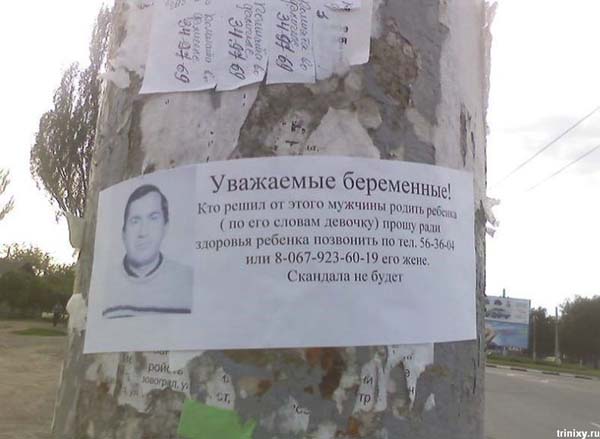 34-97 69
34-97 69
34-97 69
Уважаемые беременные!
Кто решил от этого мужчины родить ребенка
( по его словам девочку) прошу ради
здоровья ребенка позвонить по тел. 56-36-04
или 8-067-923-60-19 его жене.
Скандала не будет
trinixy.ru